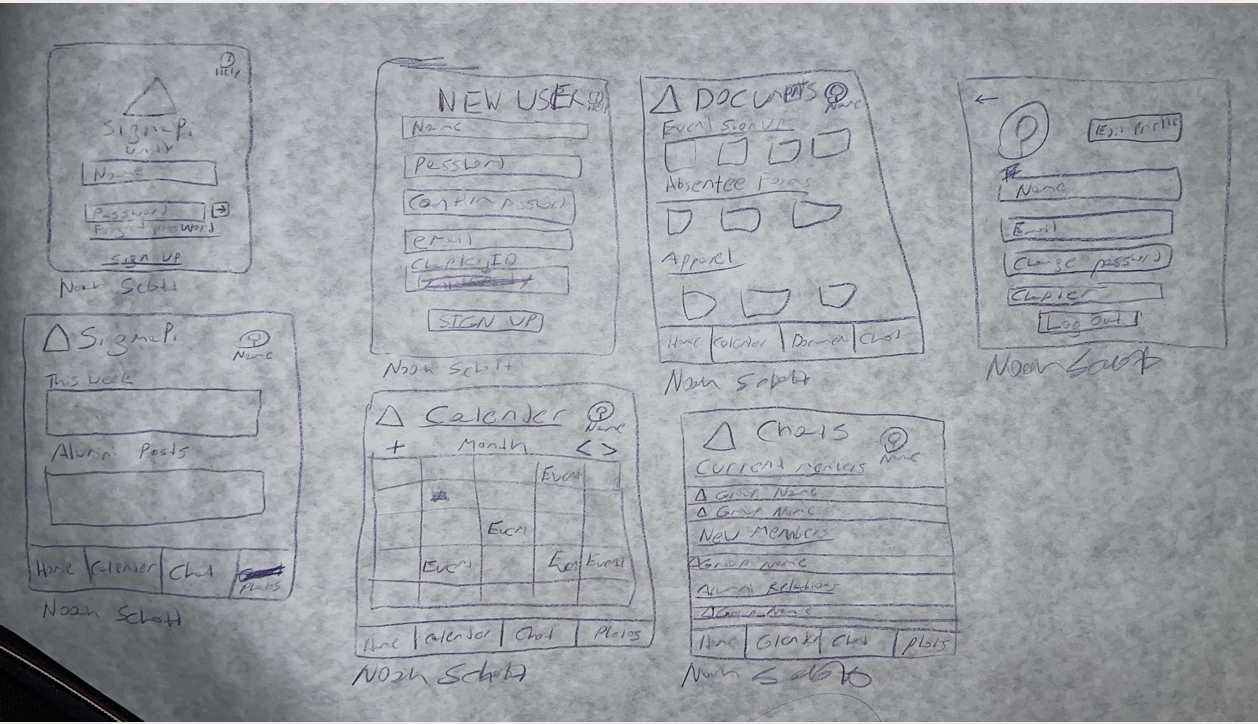 Help
Sigma Pi
Unity
Name
Password
Forgot password
SIGN UP
Noah Schott
NEW USER
Help
Name
Password
Confirm Password
email
Chapter ID
SIGN UP
Noah Schott
DOCUMENTS
Name
Event Sign UP
Absentee Forms
Apparel
Home Calender Document Chat
Noah Schott
Edit Profile
Name
Email
Change password
Chapter
Log out
Noah Schott
Sigma Pi
Name
This week
Alumni Posts
Home Calender Chat
Photos
Noah Schott
Calender
Name
+ Month < >
Event
Event
Event Event Event
Home Calender Chat Photos
Noah Schott
Chats
Name
Current members
Group Name
Group Name
New Members
Group Name
Alumni Relations
Group Name
Home Calender Chat Photos
Noah Schott